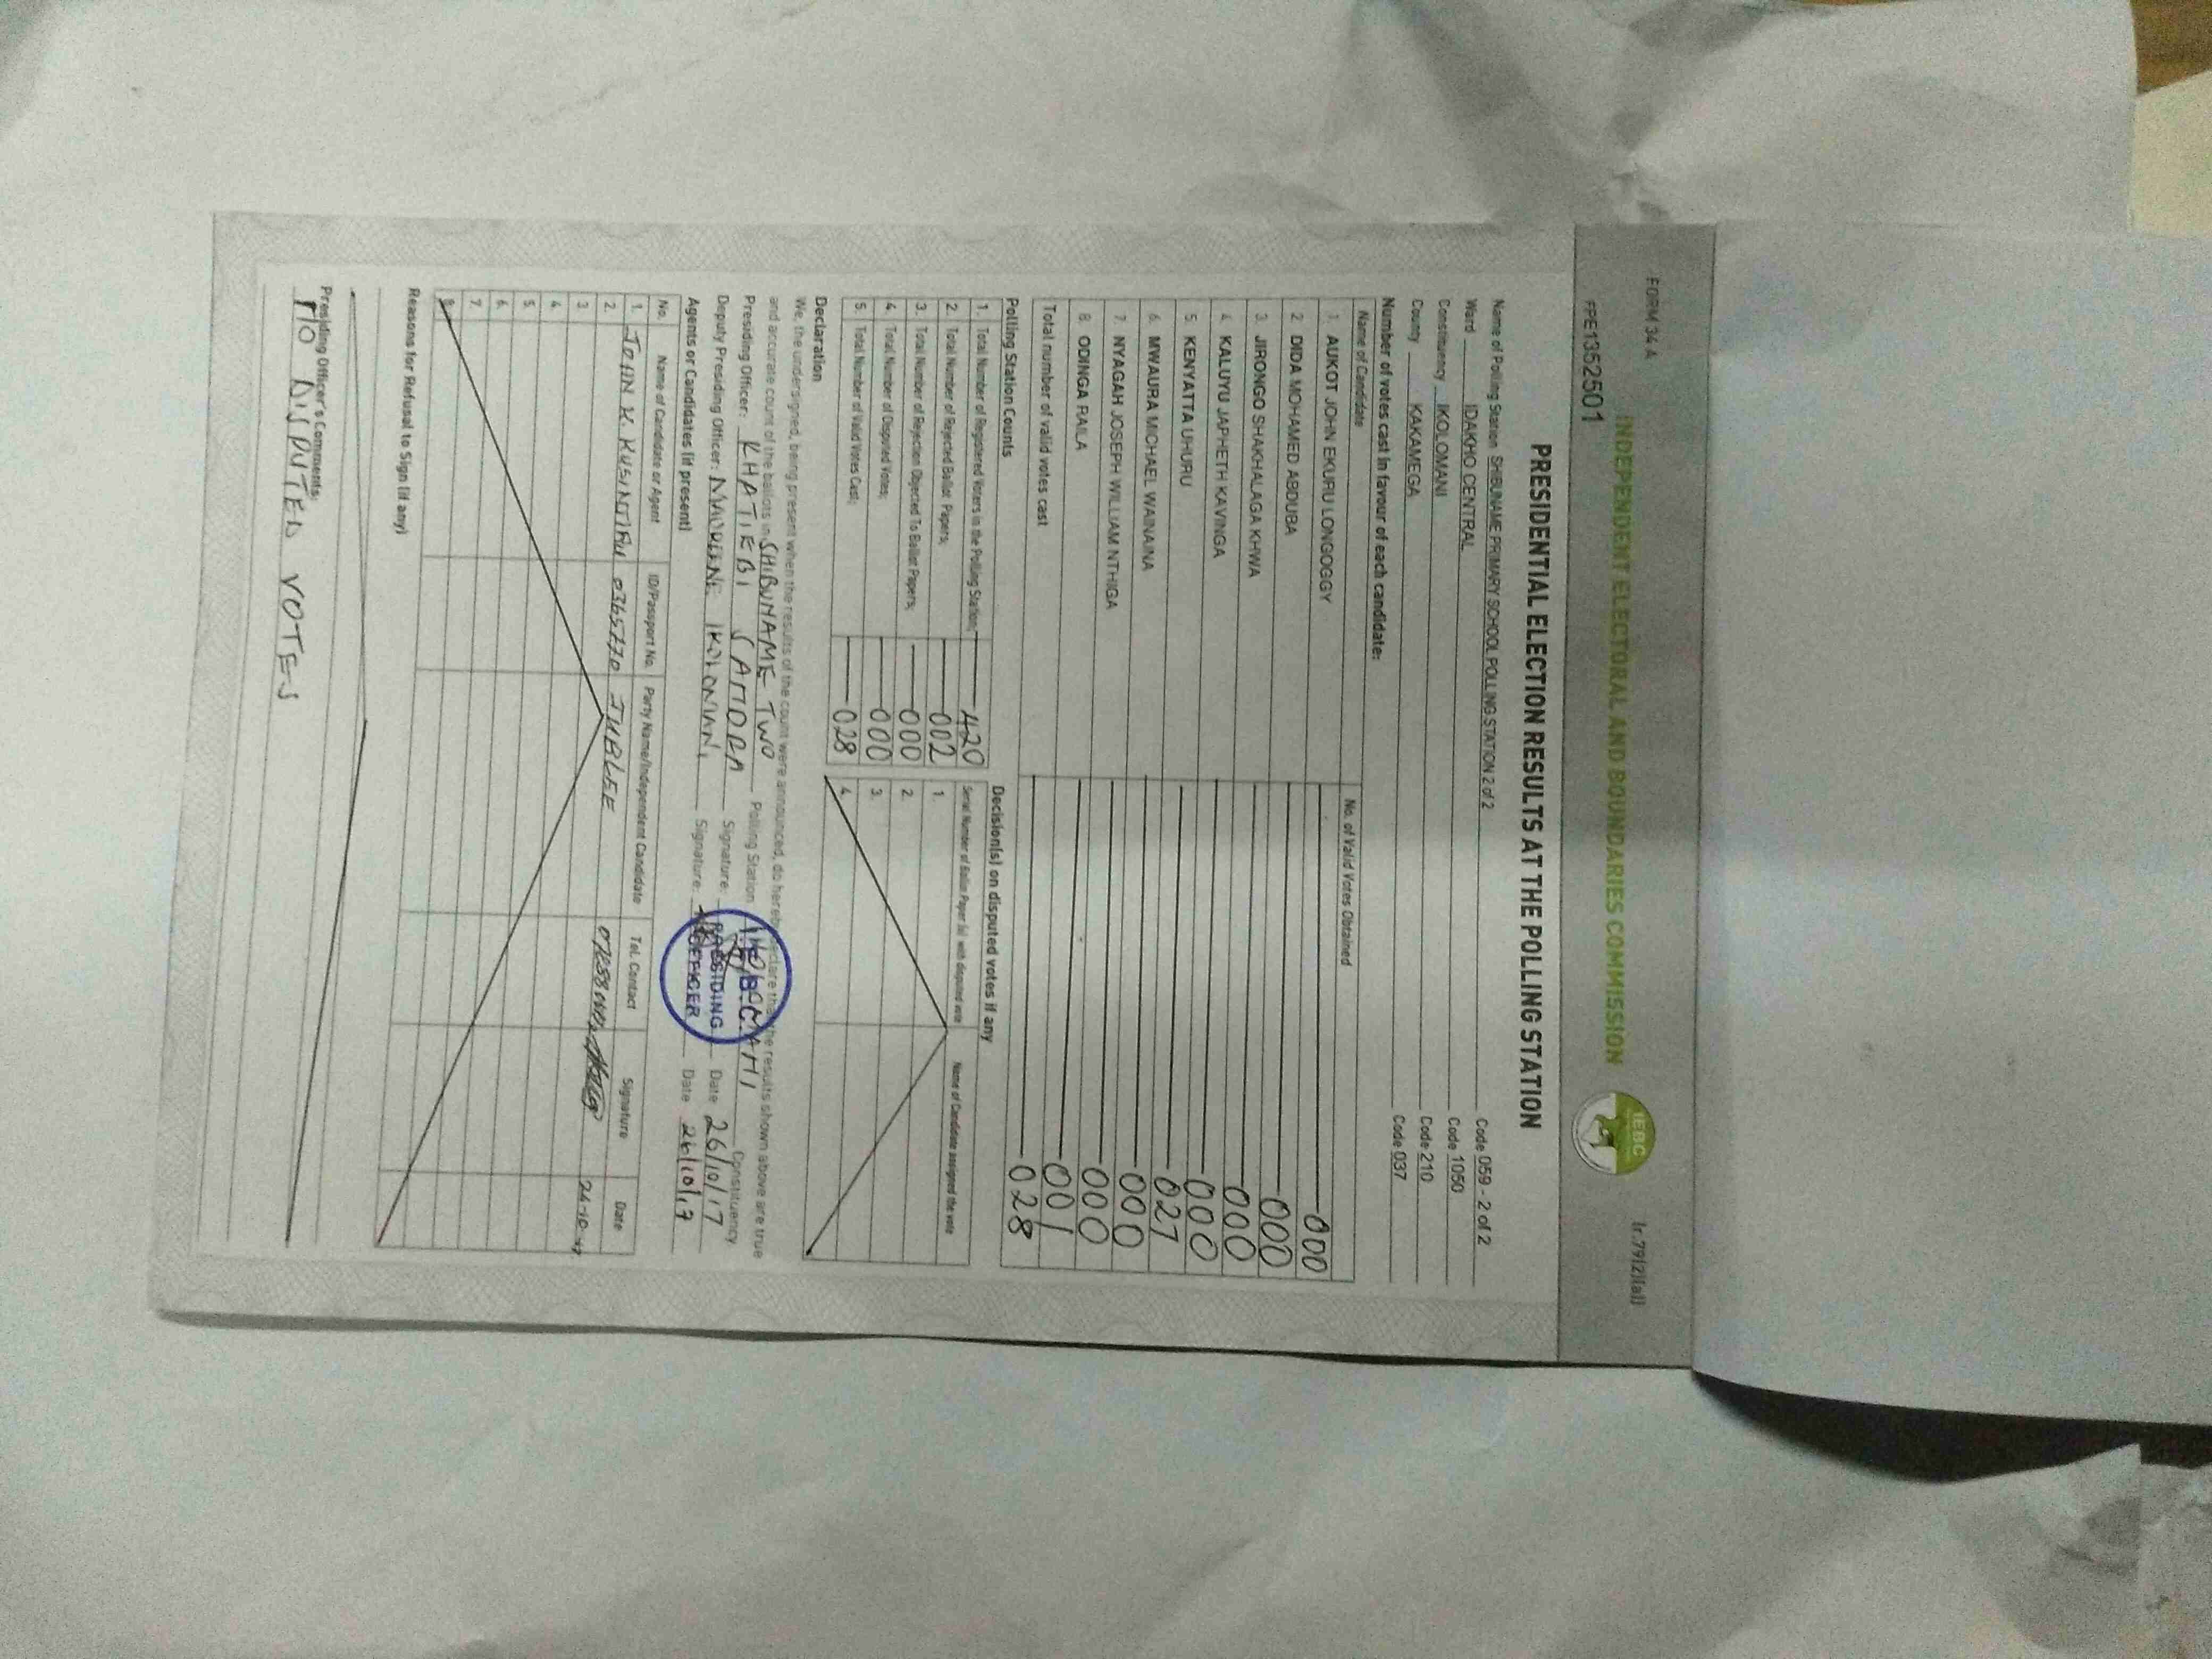 FORM 34 A
Ir.79(2)(a))
INDEPENDENT ELECTORAL AND BOUNDARIES COMMISSION
IEBC
FPE1352501
PRESIDENTIAL ELECTION RESULTS AT THE POLLING STATION
Name of Polling Station SHIBUNAME PRIMARY SCHOOL POLLING STATION 2 of 2 Code 059 - 2 of 2
Ward IDAKHO CENTRAL Code 1050
Constituency IKOLOMANI Code 210
County KAKAMEGA Code 037
Number of votes cast in favour of each candidate:
Name of Candidate No. of Valid Votes Obtained
1. AUKOT JOHN EKURU LONGOGGY 000
2. DIDA MOHAMED ABDUBA 000
3. JIRONGO SHAKHALAGA KHWA 000
4. KALUYU JAPHETH KAVINGA 000
5. KENYATTA UHURU 027
6. MWAURA MICHAEL WAINAINA 000
7. NYAGAH JOSEPH WILLIAM NTHIGA 000
8. ODINGA RAILA 001
Total number of valid votes cast 028
Polling Station Counts
1. Total Number of Registered Voters in the Polling Station; 420
2. Total Number of Rejected Ballot Papers; 002
3. Total Number of Rejection Objected To Ballot Papers; 000
4. Total Number of Disputed Votes; 000
5. Total Number of Valid Votes Cast; 028
Decision(s) on disputed votes if any
Serial Number of Ballot Paper (s) with disputed vote Name of Candidate assigned the vote
1.
2.
3.
4.
Declaration
We, the undersigned, being present when the results of the count were announced, do hereby declare that the results shown above are true
and accurate count of the ballots in SHIBUNAME TWO Polling Station Constituency
Presiding Officer: KHATIEBI SANDRA Signature: Date 26/10/17
Deputy Presiding Officer: IKOLOMANI Signature: Date 26/10/17
PRESIDING
OFFICER
Agents or Candidates (if present)
No. Name of Candidate or Agent ID/Passport No. Party Name/Independent Candidate Tel. Contact Signature Date
1. JOHN K. 0365770 JUBLEE 26-10-17
2.
3
4.
5.
6.
7.
8.
Reasons for Refusal to Sign (if any)
Presiding Officer's Comments:
NO DISPUTED VOTES